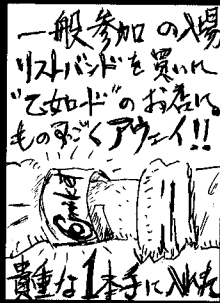 一般参加の入場
リストバンドを買いに
"乙女ロード"のお店に。
ものすごくアウェイ!!
6mket
貴重な1本手に入れた